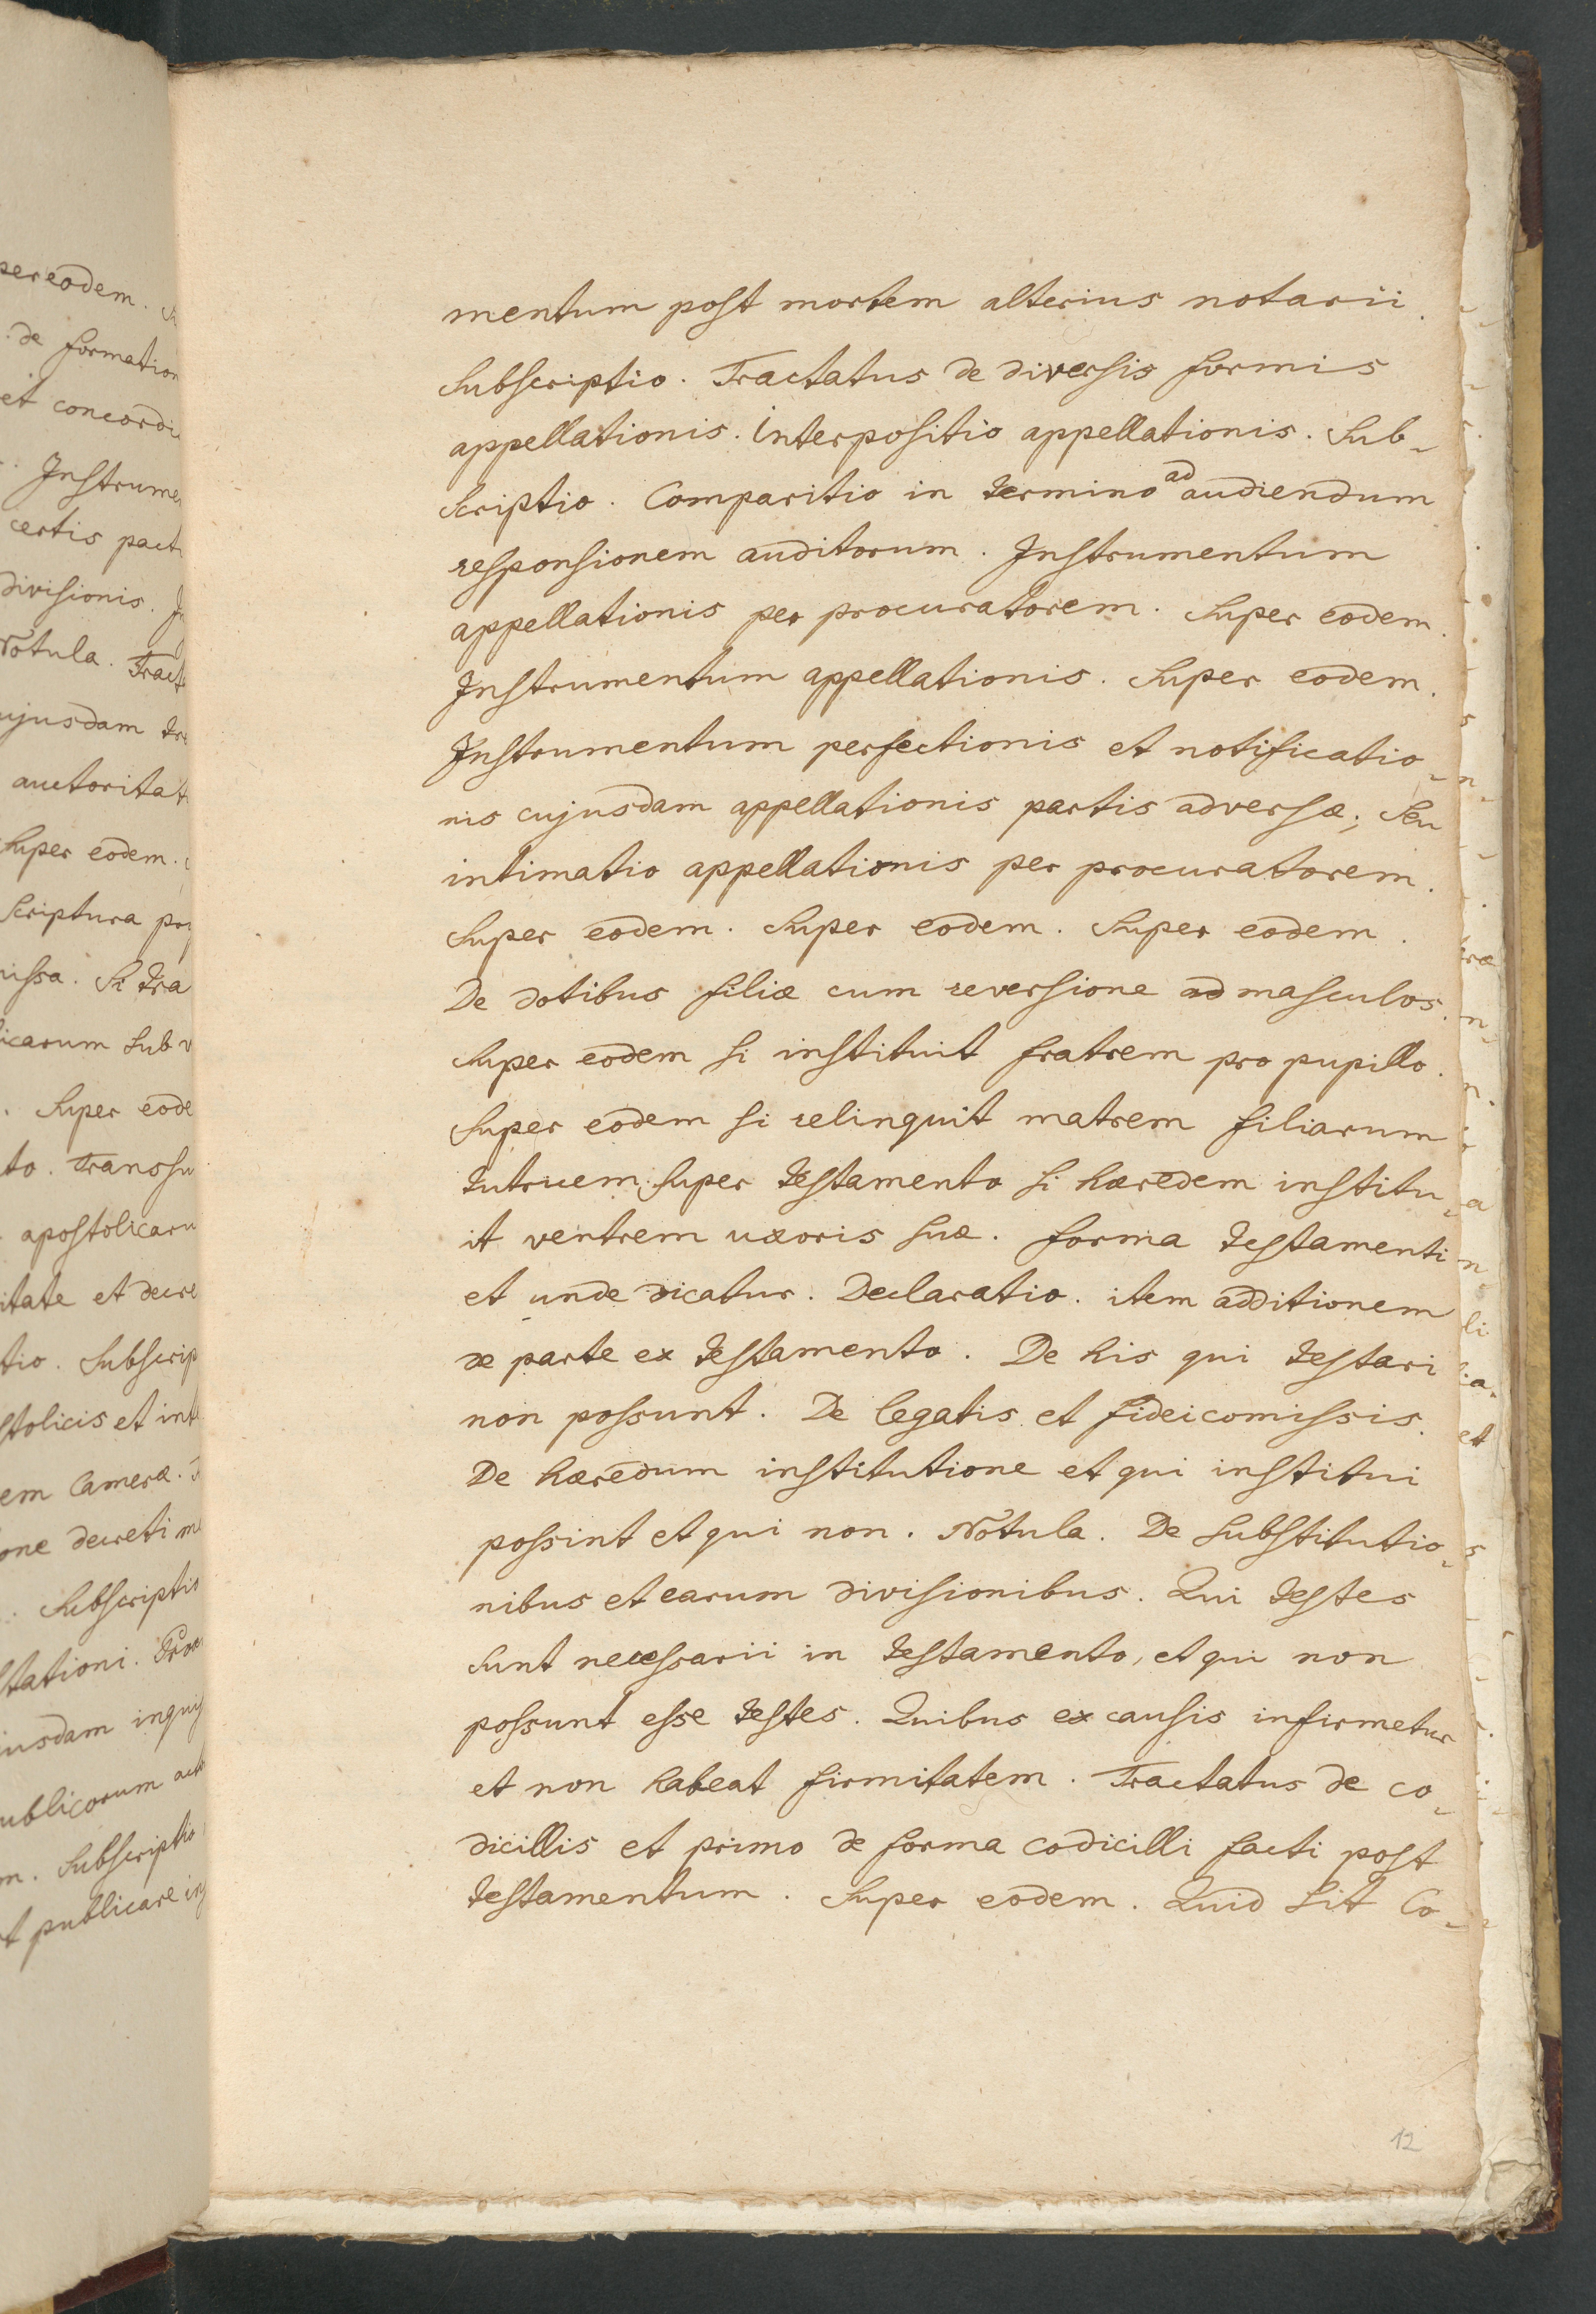 mentum post mortem alterius notarii.
Subscriptio. Tractatus de diversis formis
appellationis. Interpositio appellationis. Sub-
scriptio. Comparitio in termino ad audiendum
responsionem auditorum. Instrumentum
appellationis per procuratorem. Super eodem.
Instrumentum appellationis. Super eodem.
Instrumentum perfectionis et notificatio-
nis cujusdam appellationis partis adversæ; seu
intimatio appellationis per procuratorem.
Super eodem. Super eodem. Super eodem.
De dotibus filiæ cum reversione ad masculos.
Super eodem si instituit fratrem pro pupillo.
Super eodem si relinquit matrem filiarum
tutruem. Super testamento si hæredem institu-
it ventrem uxoris suæ. forma testamenti
et unde dicatur. Declaratio. item additionem
de parte ex testamento. De his qui testari
non possunt. De legatis et fideicomissis.
De hæredum institutione et qui institui
possint et qui non. Notula. De substitutio-
nibus et earum divisionibus. Qui testes
sunt necessarii in testamento, et qui non
possunt esse testes. Quibus ex causis infirmetur
et non habeat firmitatem. Tractatus de co-
dicillis et primo de forma codicilli facti post
testamentum. Super eodem. Quid sit Co-
12